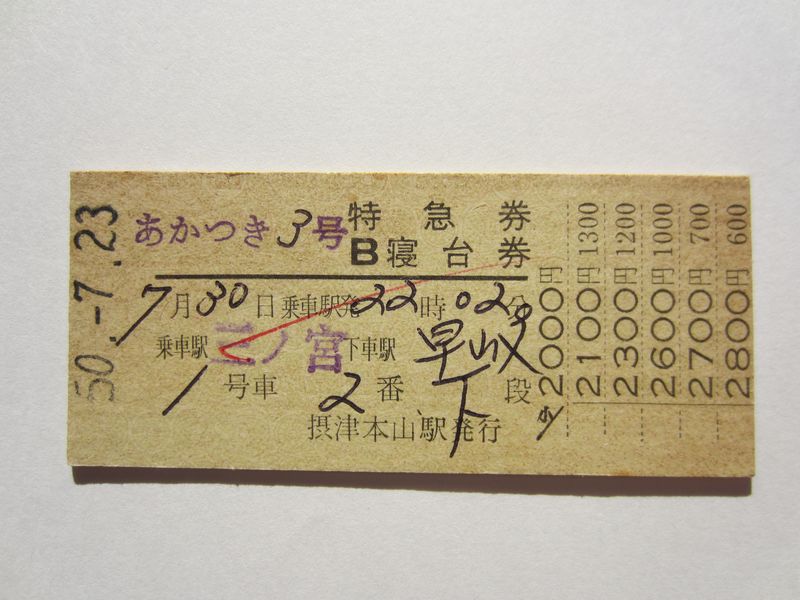 50.-7.23
あかつき3号 特急券
B寝台券
7月30日 乗車駅発22時02分
乗車駅 三ノ宮 下車駅 早岐
1号車 2番 下段
摂津本山駅発行
2000円
2100円 1300
2300円 1200
2600円 1000
2700円 700
2800円 600